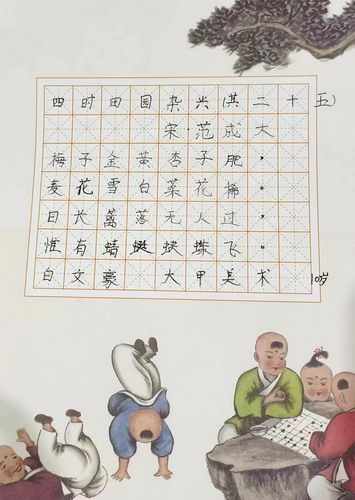 四时田园杂兴(其二十五)
宋·范成大
梅子金黄杏子肥，
麦花雪白菜花稀。
日长篱落无人过，
惟有蜻蜓蛱蝶飞。
白文豪 大甲美术 10岁